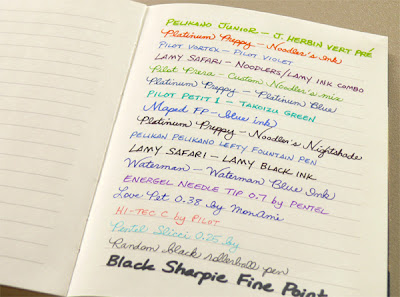 PELIKANO JUNIOR – J. HERBIN VERT PRÉ
Platinum Preppy – Noodler's Ink
PILOT VORTEX – PILOT VIOLET
LAMY SAFARI – NOODLERS/LAMY INK COMBO
Pilot Prera – Custom Noodler's mix
Platinum Preppy – Platinum Blue
PILOT PETIT 1 – TAKOIZU GREEN
Maped FP – Blue ink)
Platinum Preppy – Noodler's Nightshade
PELIKAN PELIKANO LEFTY FOUNTAIN PEN
LAMY SAFARI – LAMY BLACK INK
Waterman – Waterman Blue Ink
ENERGEL NEEDLE TIP 0.7 by PENTEL
Love Pet 0.38 by MonAmi
HI-TEC C by PILOT
Pentel Slicci 0.25 by
Random black rollerball pen
Black Sharpie Fine Point